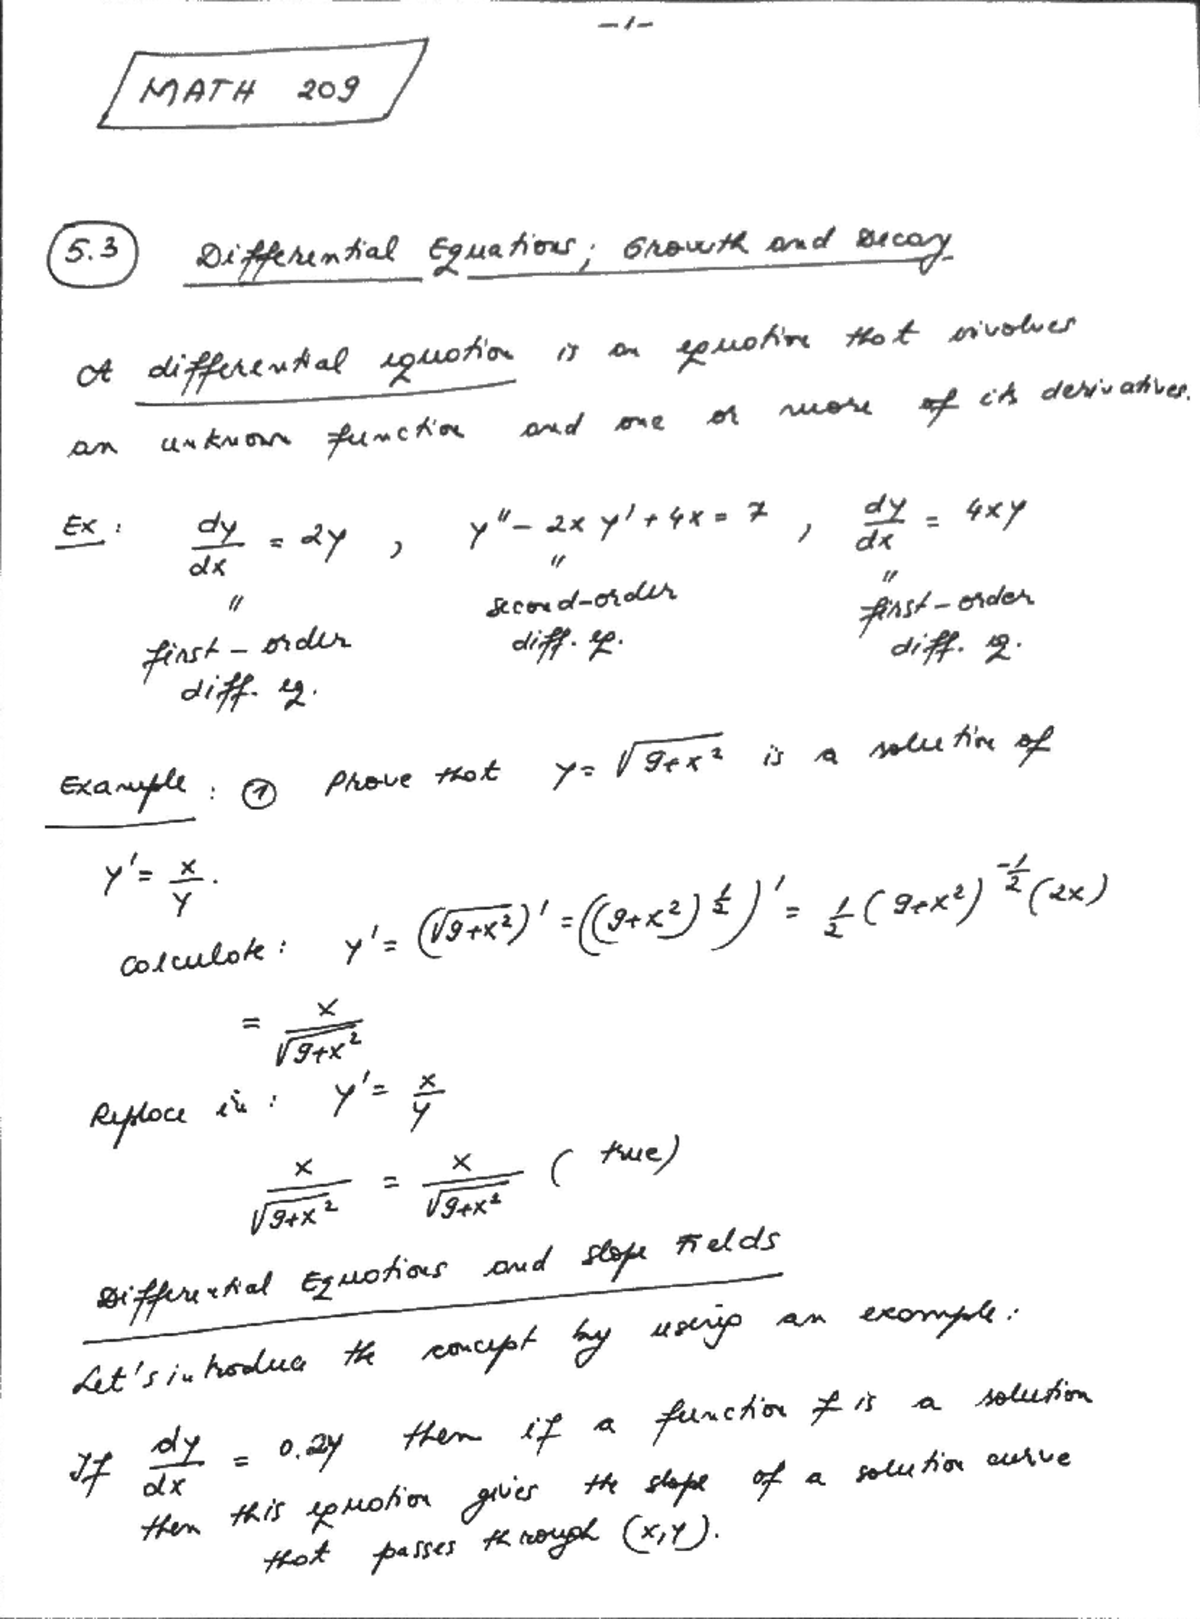 -1-
MATH 209
5.3 Differential Equations; Growth and Decay
A differential equation is an equation that involves
an unknown function and one or more of its derivatives.
Ex: dy/dx = 2y , y" - 2x y' + 4x = 7 , dy/dx = 4xy
" " "
first-order diff. eq. second-order diff. eq. first-order diff. eq.
Example: ① Prove that y = √(9+x²) is a solution of
y' = x/y.
Calculate: y' = (√(9+x²))' = ((9+x²)^(1/2))' = 1/2 (9+x²)^(-1/2) (2x)
= x/√(9+x²)
Replace in: y' = x/y
x/√(9+x²) = x/√(9+x²) (true)
Differential Equations and Slope Fields
Let's introduce the concept by using an example:
If dy/dx = 0.2y then if a function f is a solution
then this equation gives the slope of a solution curve
that passes through (x,y).